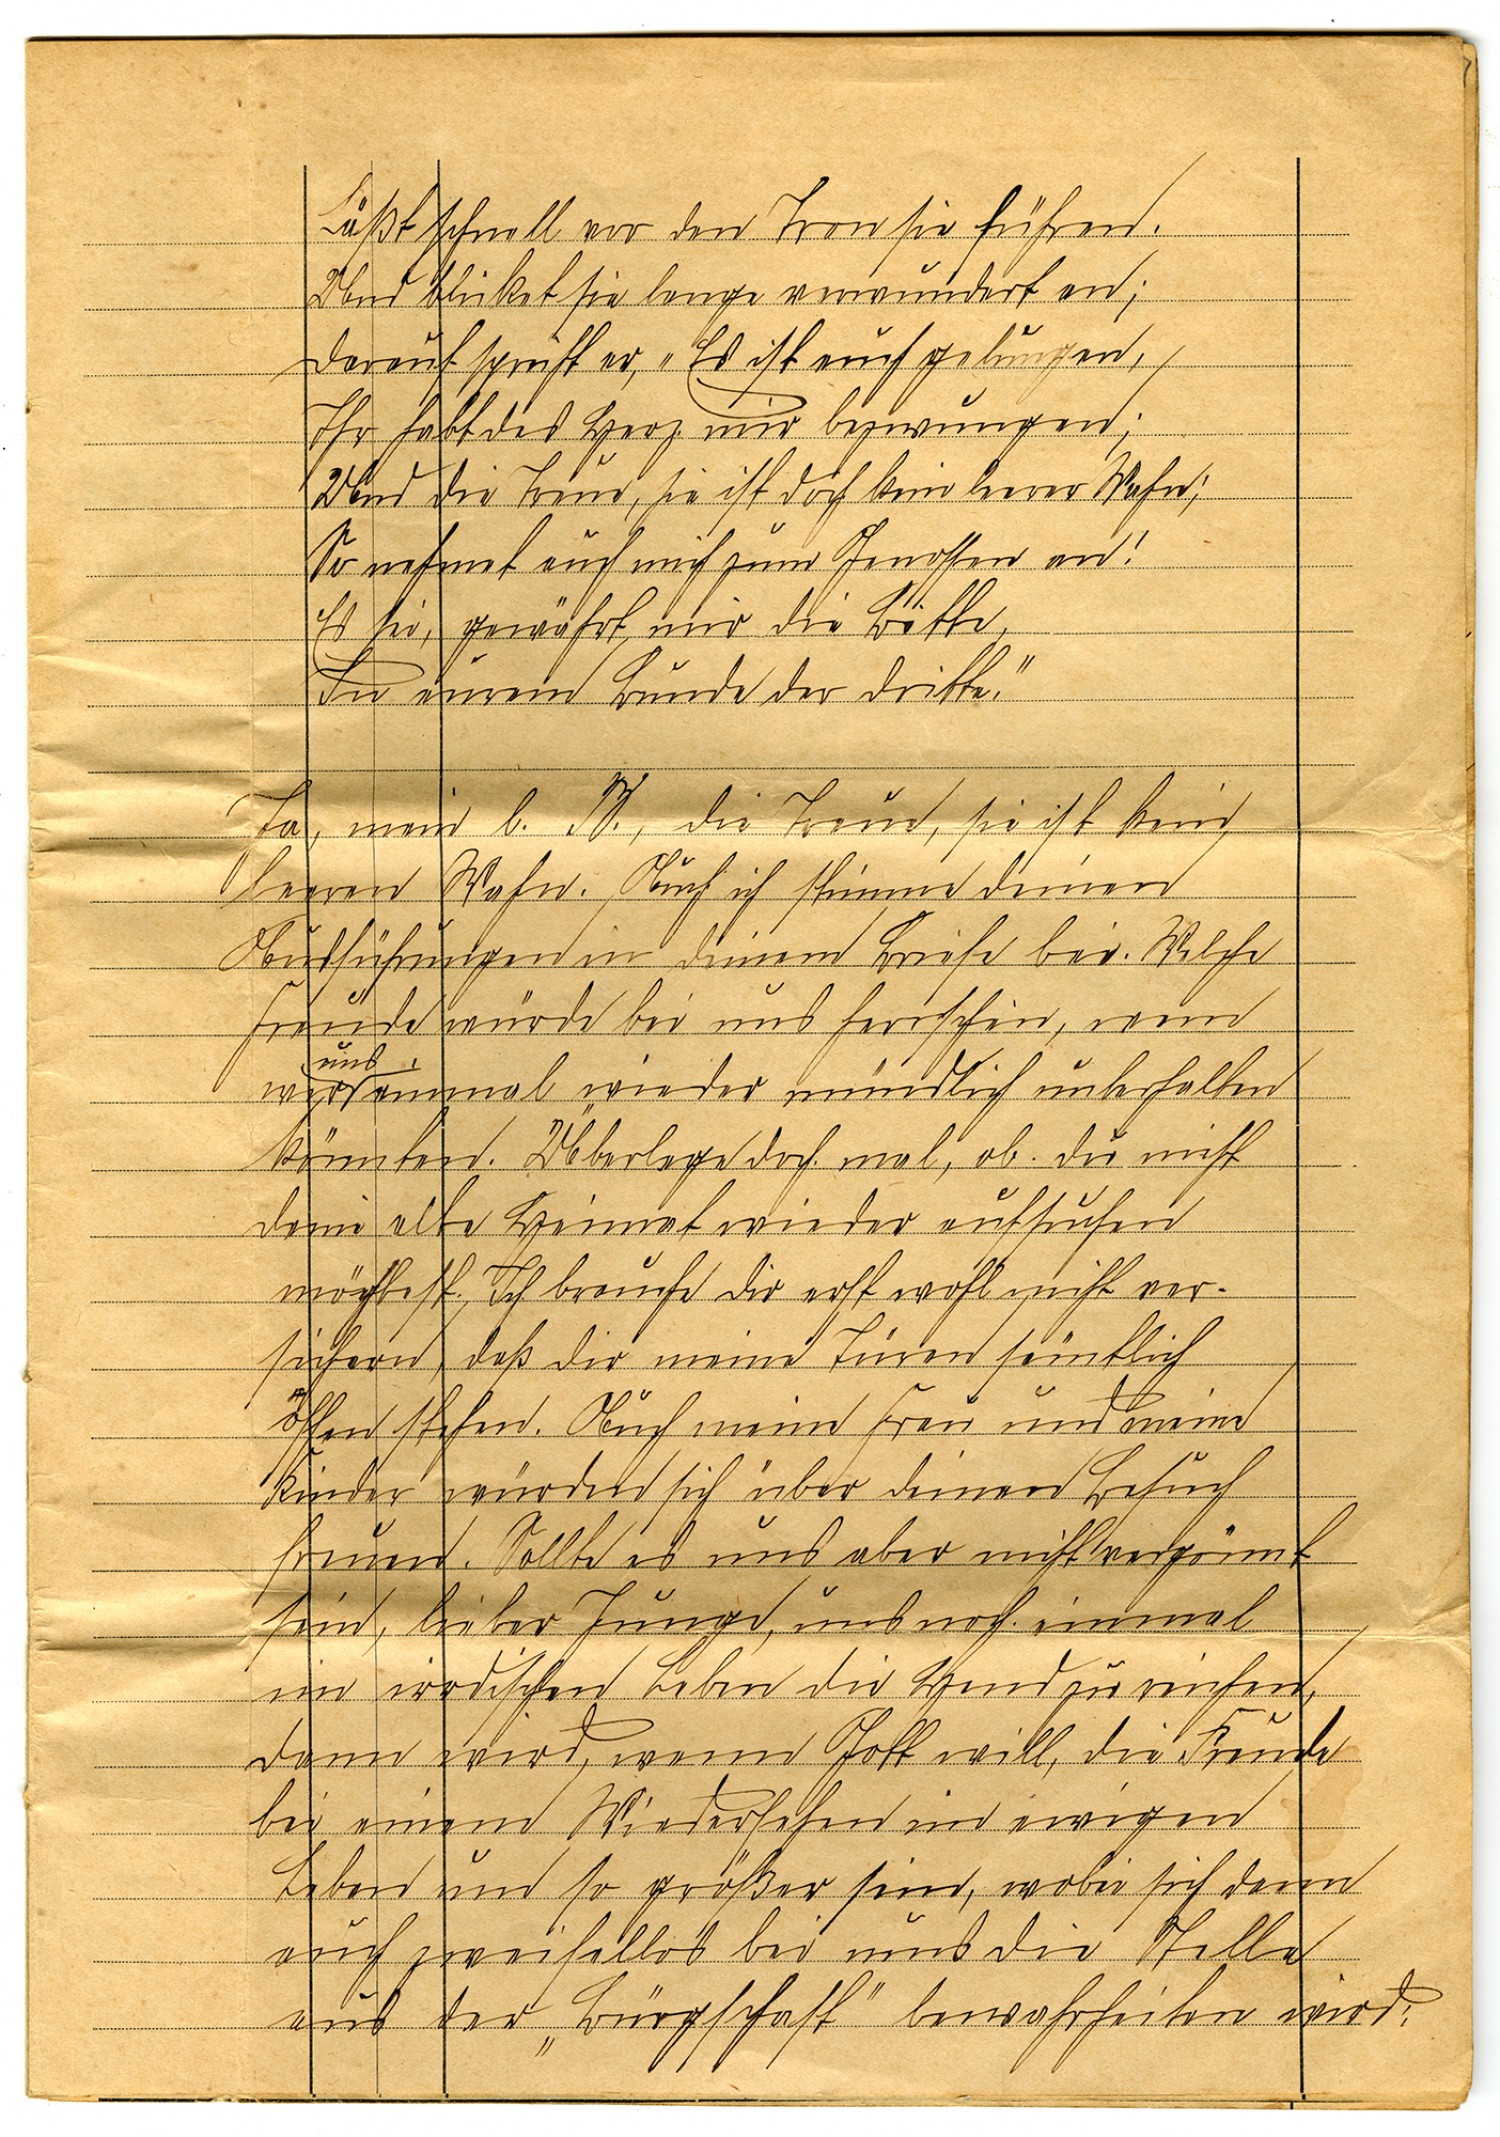 Läßt schnell vor den Tron sie führen.
Und blicket sie lange verwundert an;
darauf spricht er, „Es ist euch gelungen,
Ihr habt das Herz mir bezwungen;
Und die Treue, sie ist doch kein leerer Wahn;
So nehmet auch mich zum Genossen an!
Es sei, gewährt mir die Bitte,
In eurem Bunde der dritte."
Ja, mein l. W., die Treue, sie ist kein
leeren Wahn. Auch ich stimme deinen
Ausführungen in deinem Briefe bei. Welche
Freude würde bei uns herrschen, wenn
uns
wir einmal wieder mündlich unterhalten
könnten. Überlege doch mal, ob du nicht
deine alte Heimat wieder aufsuchen
möchtest. Ich brauche dir erst wohl nicht ver-
sichern, daß dir meine Türen sämtlich
offen stehen. Auch meine Frau und meine
Kinder würden sich über deinen Besuch
freuen. Sollte es uns aber nicht vergönnt
sein, lieber Junge, uns noch einmal
im irdischen Leben die Hand zu reichen,
dann wird, wenn Gott will, die Freude
bei einem Wiedersehen im ewigen
Leben um so größer sein, wobei sich dann
auch zweifellos bei uns die Stelle
aus der „Bürgschaft" bewahrheiten wird: